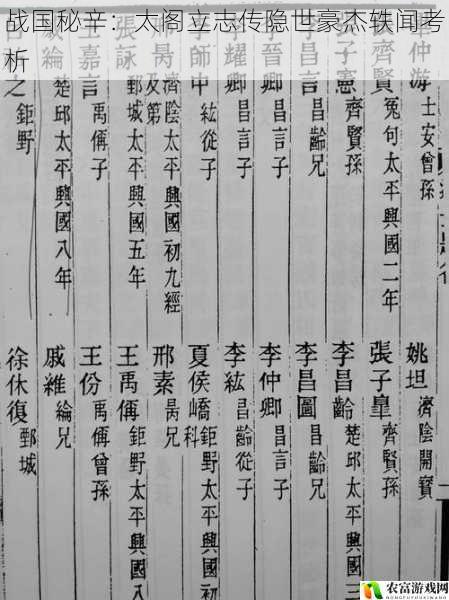 战国秘辛：太阁立志传隐世豪杰轶闻考
析
仲游 士安曾孫
賢 冤句太平興國二年
子憲 齊賢孫
昌言 昌齡兄
昌言子
耀卿 昌言子
李師中 紘從子
昺 濟陰太平興國初九經
及第
張詠 鄄城太平興國五年
王嘉言 禹偁子
綸 楚邱太平興國八年
之 鉅野
姚坦 濟陰開寶
張子臯 齊賢孫
李昌齡 楚邱太平興國三
李昌圖 昌齡兄
李仲卿 昌言子
李紘 昌齡從子
夏侯嶠 鉅野太平興國
科
邢素 昺兄
王禹偁 鉅野太平興國八
王份 禹偁曾孫
戚維 綸兄
徐休復 鄄城
农富游戏网